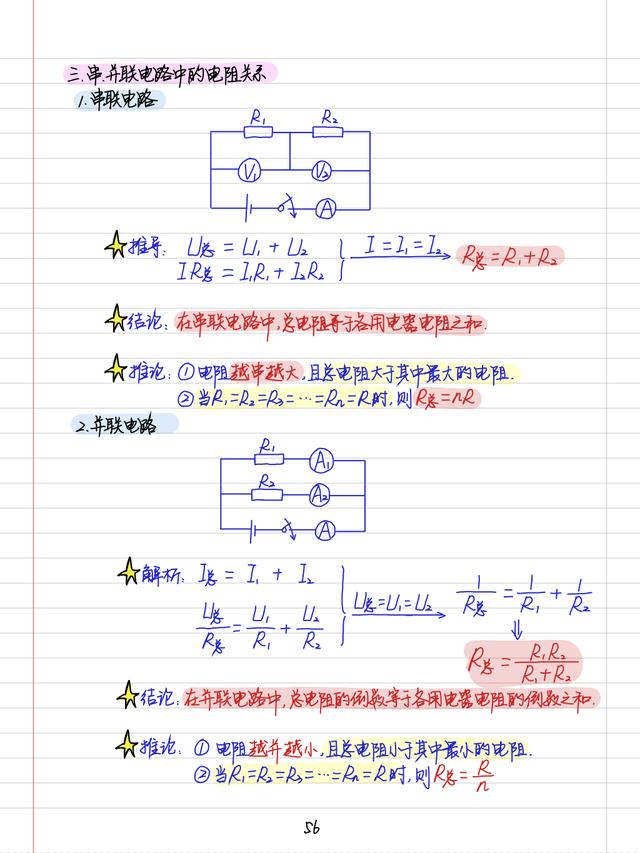 三.串.并联电路中的电阻关系
1.串联电路
R₁ R₂
V₁ V₂
A
推导: U总 = U₁ + U₂
I = I₁ = I₂
R总 = R₁ + R₂
IR总 = I₁R₁ + I₂R₂
结论: 在串联电路中,总电阻等于各用电器电阻之和.
推论: ①电阻越串越大,且总电阻大于其中最大的电阻.
②当R₁=R₂=R₃=…=Rn=R时,则R总=nR
2.并联电路
R₁ A₁
R₂ A₂
A
解析: I总 = I₁ + I₂
U总/R总 = U₁/R₁ + U₂/R₂
U总=U₁=U₂
1/R总 = 1/R₁ + 1/R₂
R总 = R₁R₂/(R₁+R₂)
结论: 在并联电路中,总电阻的倒数等于各用电器电阻的倒数之和.
推论: ①电阻越并越小,且总电阻小于其中最小的电阻.
②当R₁=R₂=R₃=…=Rn=R时,则R总=R/n
56